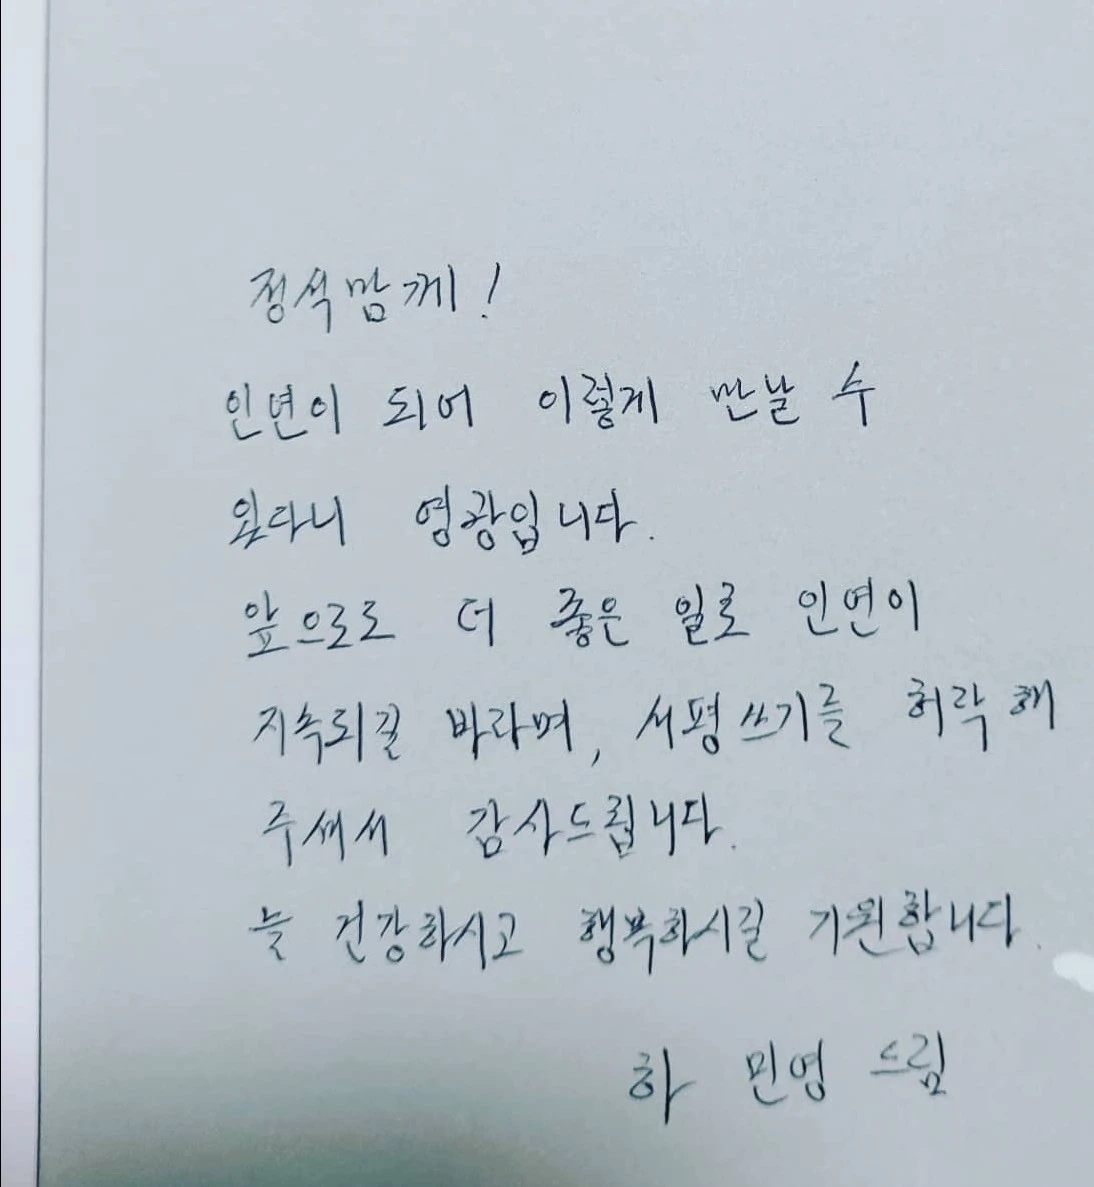 정석맘께!
인연이 되어 이렇게 만날 수
있다니 영광입니다.
앞으로도 더 좋은 일로 인연이
지속되길 바라며, 서평쓰기를 허락해
주셔서 감사드립니다.
늘 건강하시고 행복하시길 기원합니다.
하 민영 드림